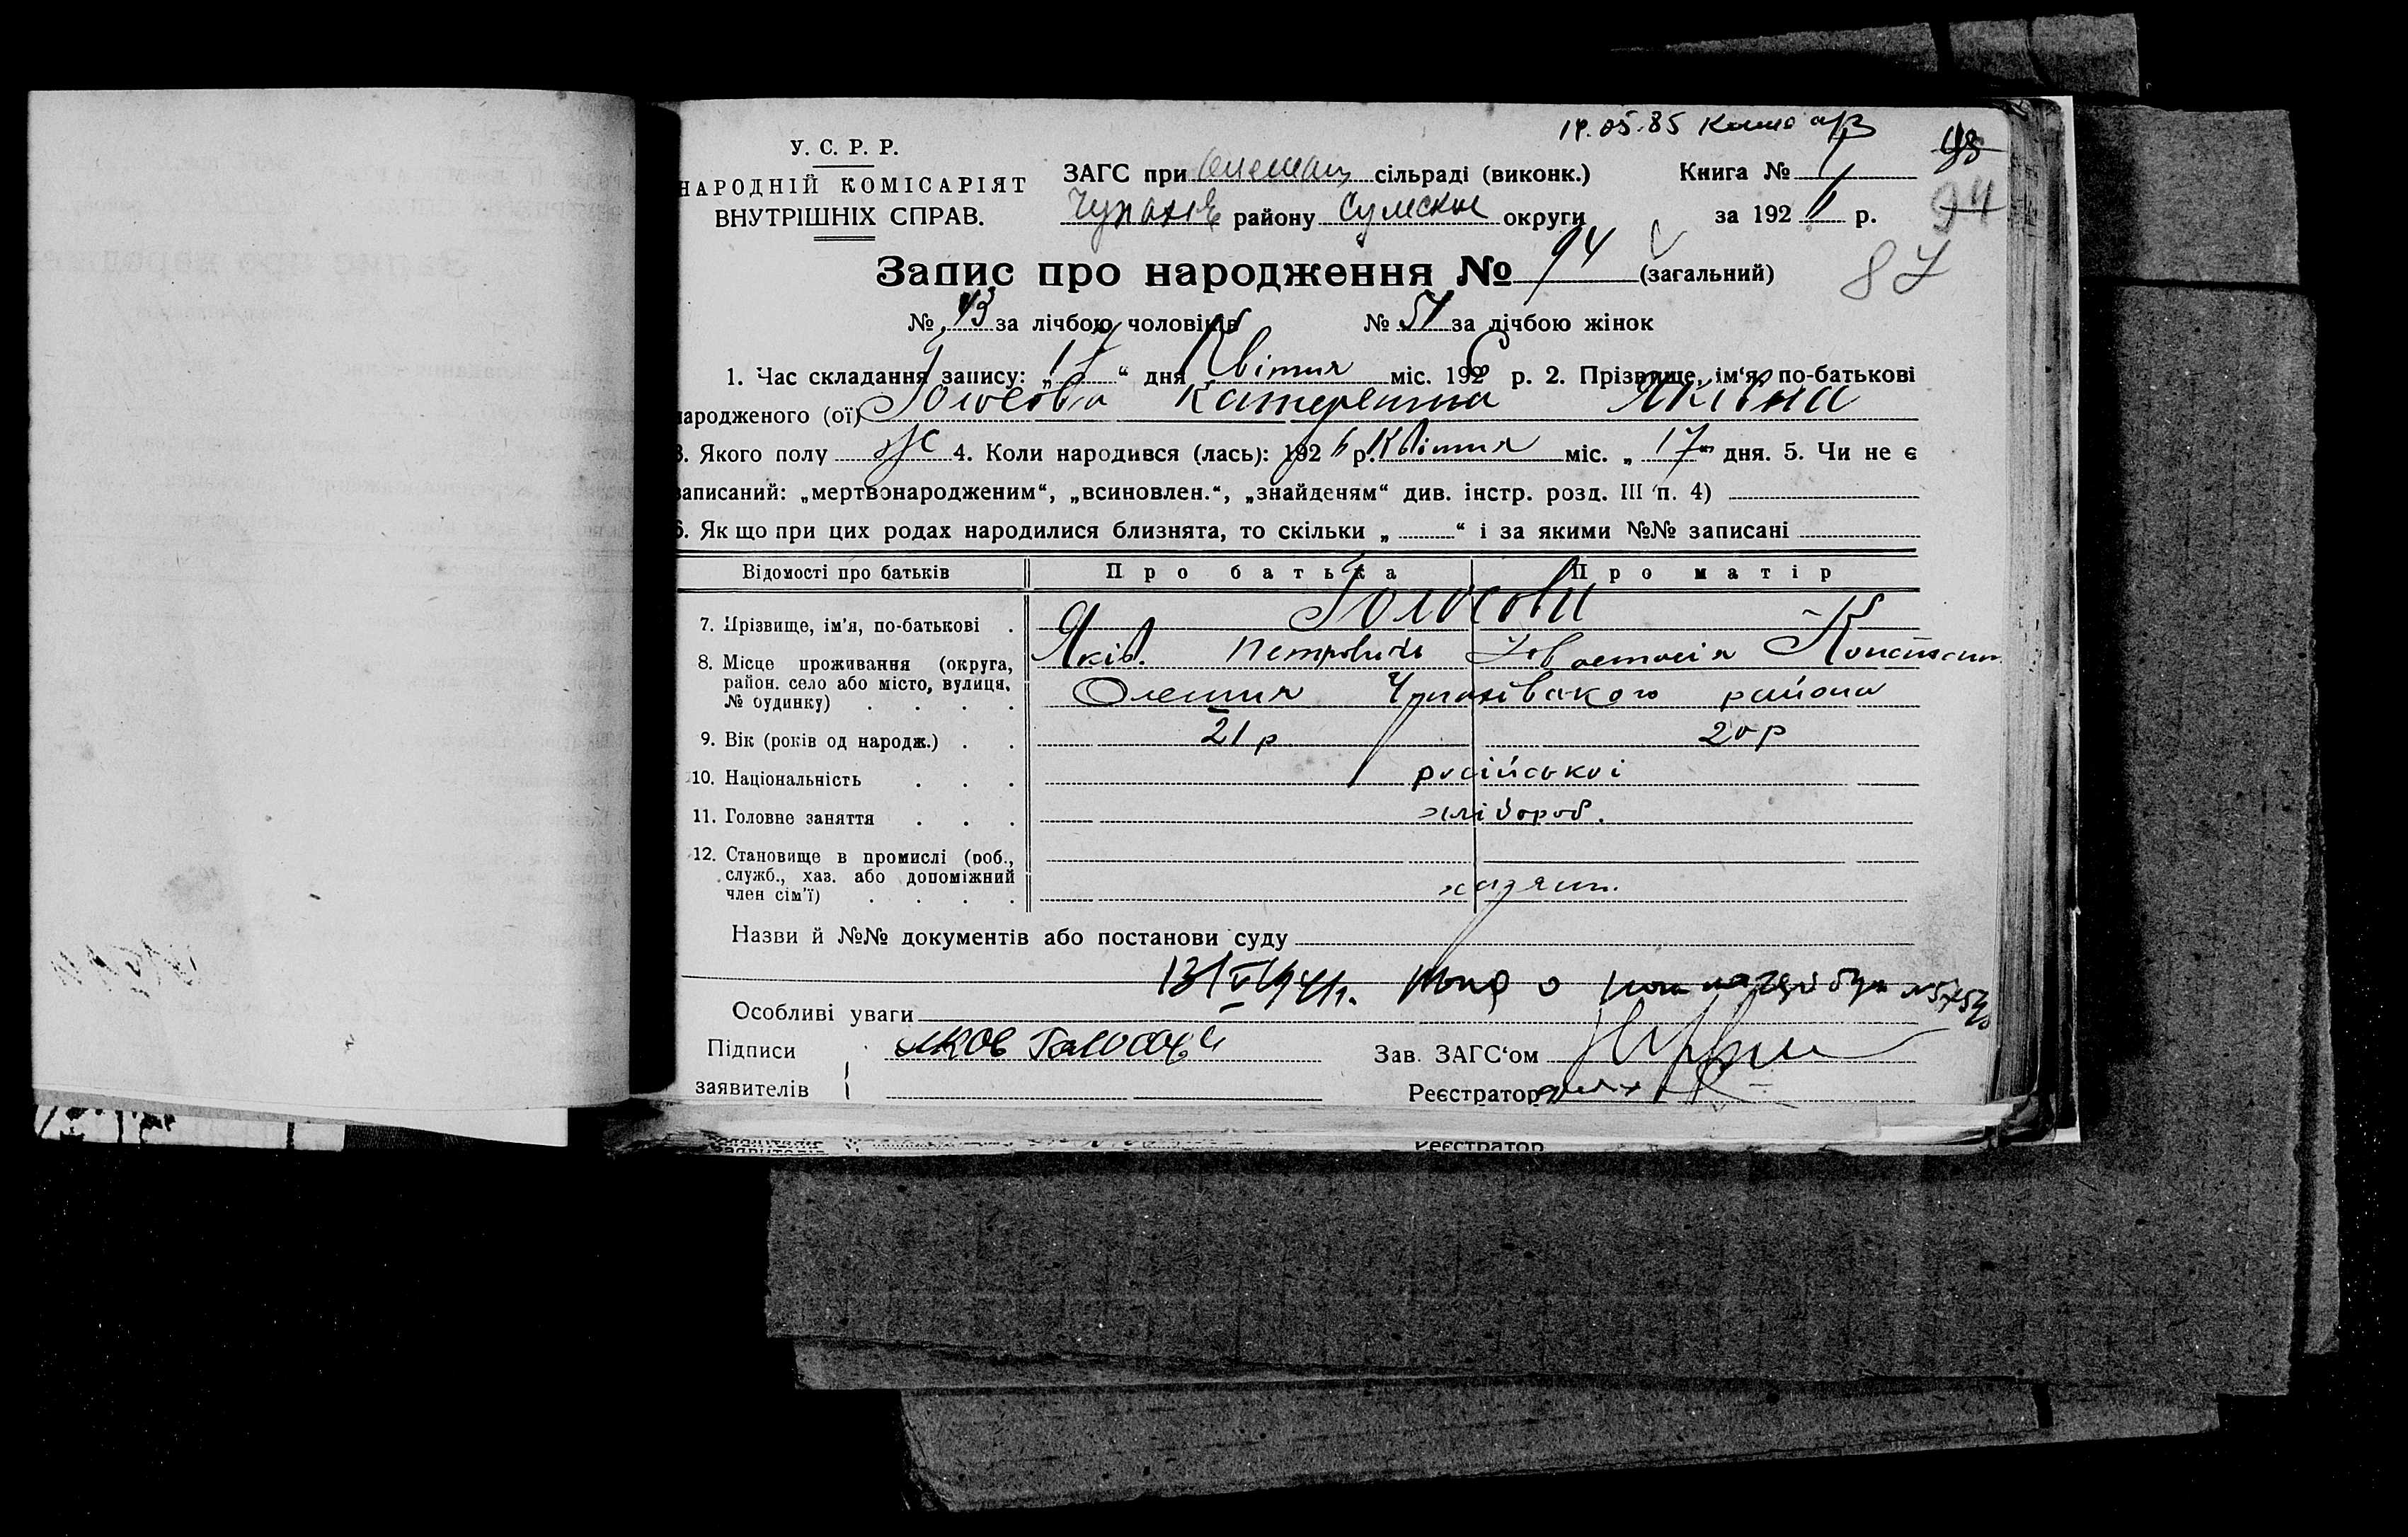 У. С. Р. Р.
НАРОДНІЙ КОМІСАРІЯТ
ВНУТРІШНІХ СПРАВ.
19.05.85
ЗАГС при сільраді (виконк.)
району Сумской округи
Книга № 1
за 1926 р.
93
94
87
Запис про народження № 94 (загальний)
№ 43 за лічбою чоловіків № 51 за лічбою жінок
1. Час складання запису: „17“ дня Квітня міс. 1926 р. 2. Прізвище, ім‘я, по-батькові
народженого (ої) Голосова Катерина Яківна
3. Якого полу ж 4. Коли народився (лась): 1926 р. Квітня міс. „17“ дня. 5. Чи не є
записаний: „мертвонародженим“, „всиновлен.“, „знайденям“ див. інстр. розд. III п. 4)
6. Як що при цих родах народилися близнята, то скільки „ “ і за якими №№ записані
Відомості про батьків Про батька Про матір
Голосови
7. Прізвище, ім’я, по-батькові Яків Петрович
8. Місце проживання (округа, район. село або місто, вулиця, № будинку) Олешня Чупахівского района
9. Вік (років од народж.) 21 р 20 р
10. Національність російської
11. Головне заняття хлібороб.
12. Становище в промислі (роб., служб., хаз. або допоміжний член сім’ї) хазяин.
Назви й №№ документів або постанови суду
Особливі уваги
Підписи Яков
заявителів
Зав. ЗАГС‘ом
Реєстратор
Реєстратор